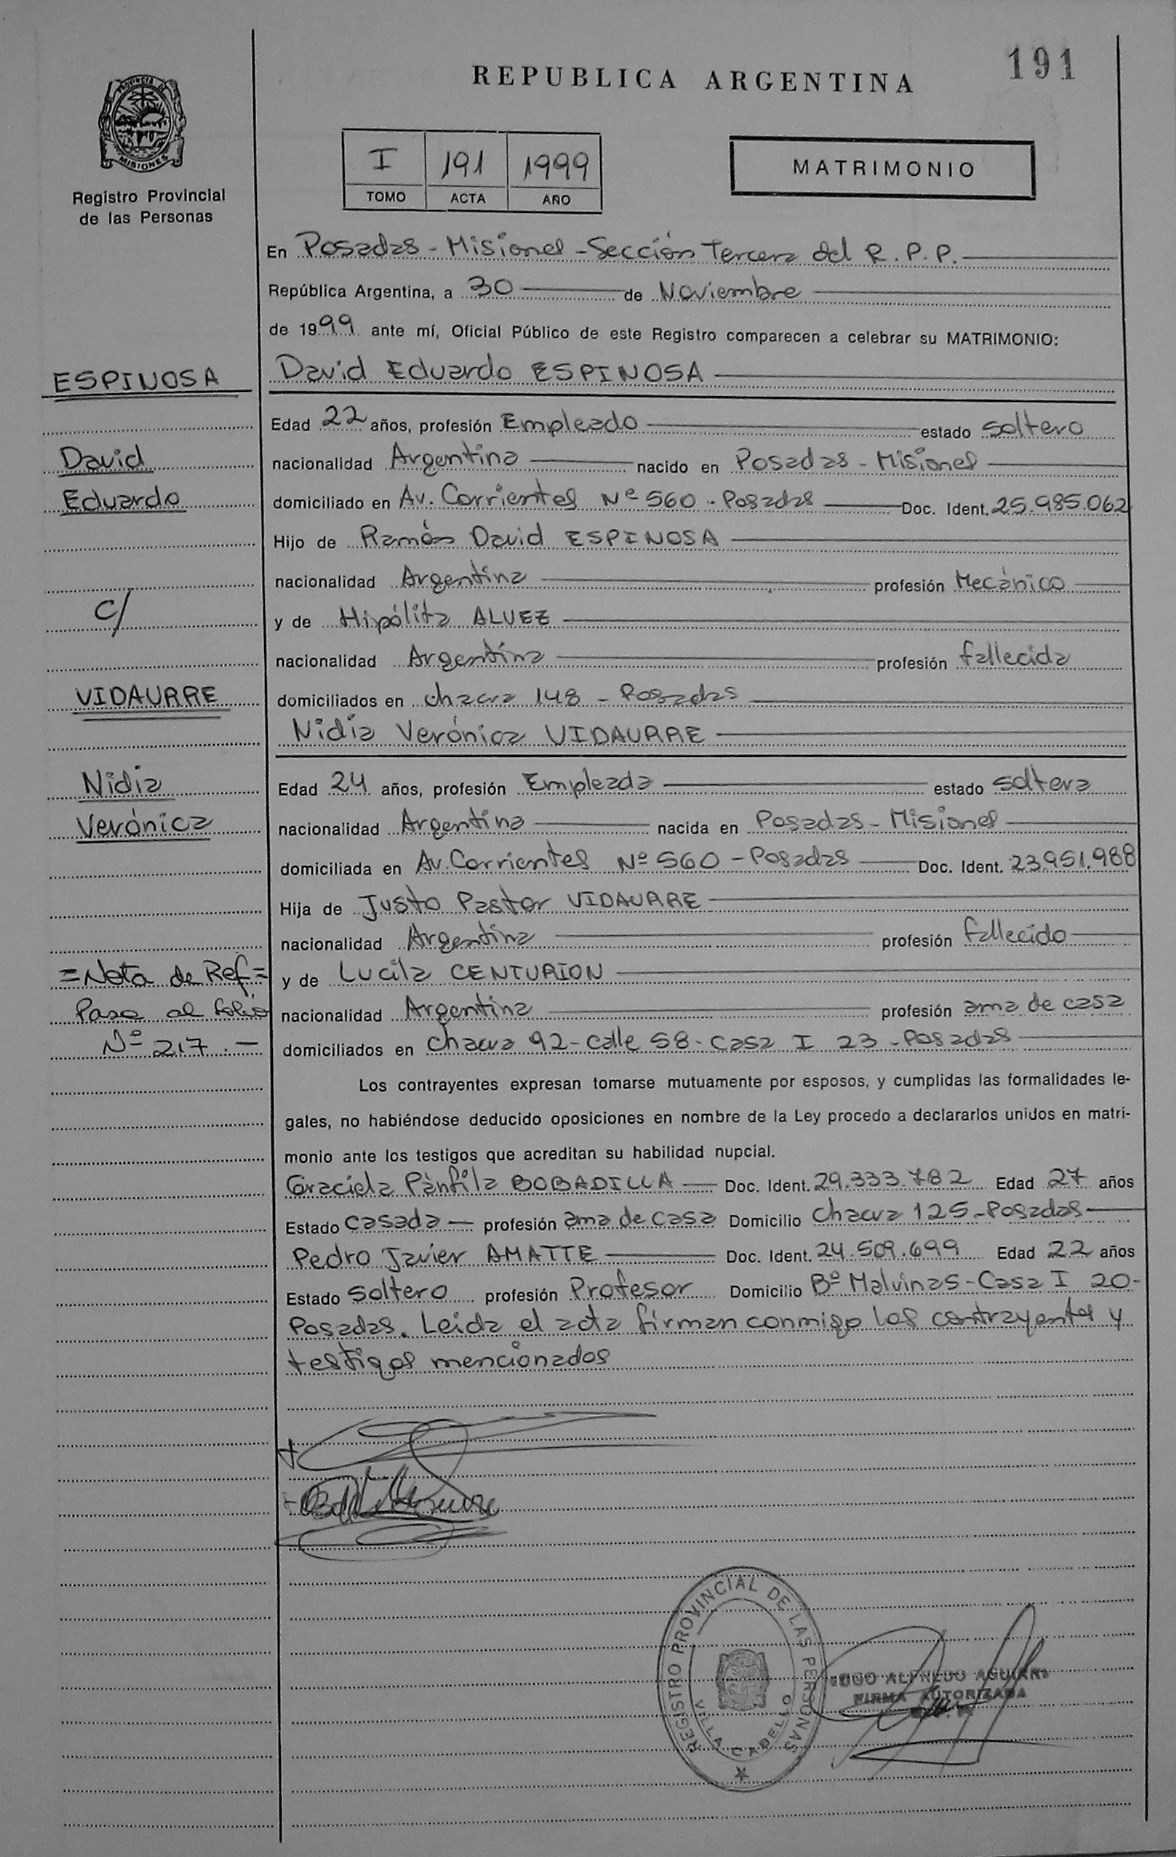 191
REPUBLICA ARGENTINA
PROVINCIA DE
MISIONES
Registro Provincial
de las Personas
I 191 1999
TOMO ACTA AÑO
MATRIMONIO
En Posadas - Misiones - Sección Tercera del R. P. P.
República Argentina, a 30 de Noviembre
de 1999 ante mí, Oficial Público de este Registro comparecen a celebrar su MATRIMONIO:
ESPINOSA
David
Eduardo
c/
VIDAURRE
Nidia
Verónica
=Nota de Ref=
Pasa al folio
Nº 217.-
David Eduardo ESPINOSA
Edad 22 años, profesión Empleado estado soltero
nacionalidad Argentina nacido en Posadas - Misiones
domiciliado en Av. Corrientes Nº 560 - Posadas Doc. Ident. 25.985.062
Hijo de Ramón David ESPINOSA
nacionalidad Argentina profesión Mecánico
y de Hipólita ALVEZ
nacionalidad Argentina profesión fallecida
domiciliados en chacra 148 - Posadas
Nidia Verónica VIDAURRE
Edad 24 años, profesión Empleada estado soltera
nacionalidad Argentina nacida en Posadas - Misiones
domiciliada en Av. Corrientes Nº 560 - Posadas Doc. Ident. 23.951.988
Hija de Justo Pastor VIDAURRE
nacionalidad Argentina profesión fallecido
y de Lucila CENTURION
nacionalidad Argentina profesión ama de casa
domiciliados en chacra 92 - calle 58 - casa I 23 - Posadas
Los contrayentes expresan tomarse mutuamente por esposos, y cumplidas las formalidades le-
gales, no habiéndose deducido oposiciones en nombre de la Ley procedo a declararlos unidos en matri-
monio ante los testigos que acreditan su habilidad nupcial.
Graciela Pánfila BOBADILLA Doc. Ident. 29.333.782 Edad 27 años
Estado casada profesión ama de casa Domicilio chacra 125 - Posadas
Pedro Javier AMATTE Doc. Ident. 24.509.699 Edad 22 años
Estado soltero profesión Profesor Domicilio Bº Malvinas - Casa I 20 -
Posadas. Leída el acta firman conmigo los contrayentes y
testigos mencionados
REGISTRO PROVINCIAL DE LAS PERSONAS
VILLA CABELLO
HUGO ALFREDO AGUIAR
FIRMA AUTORIZADA